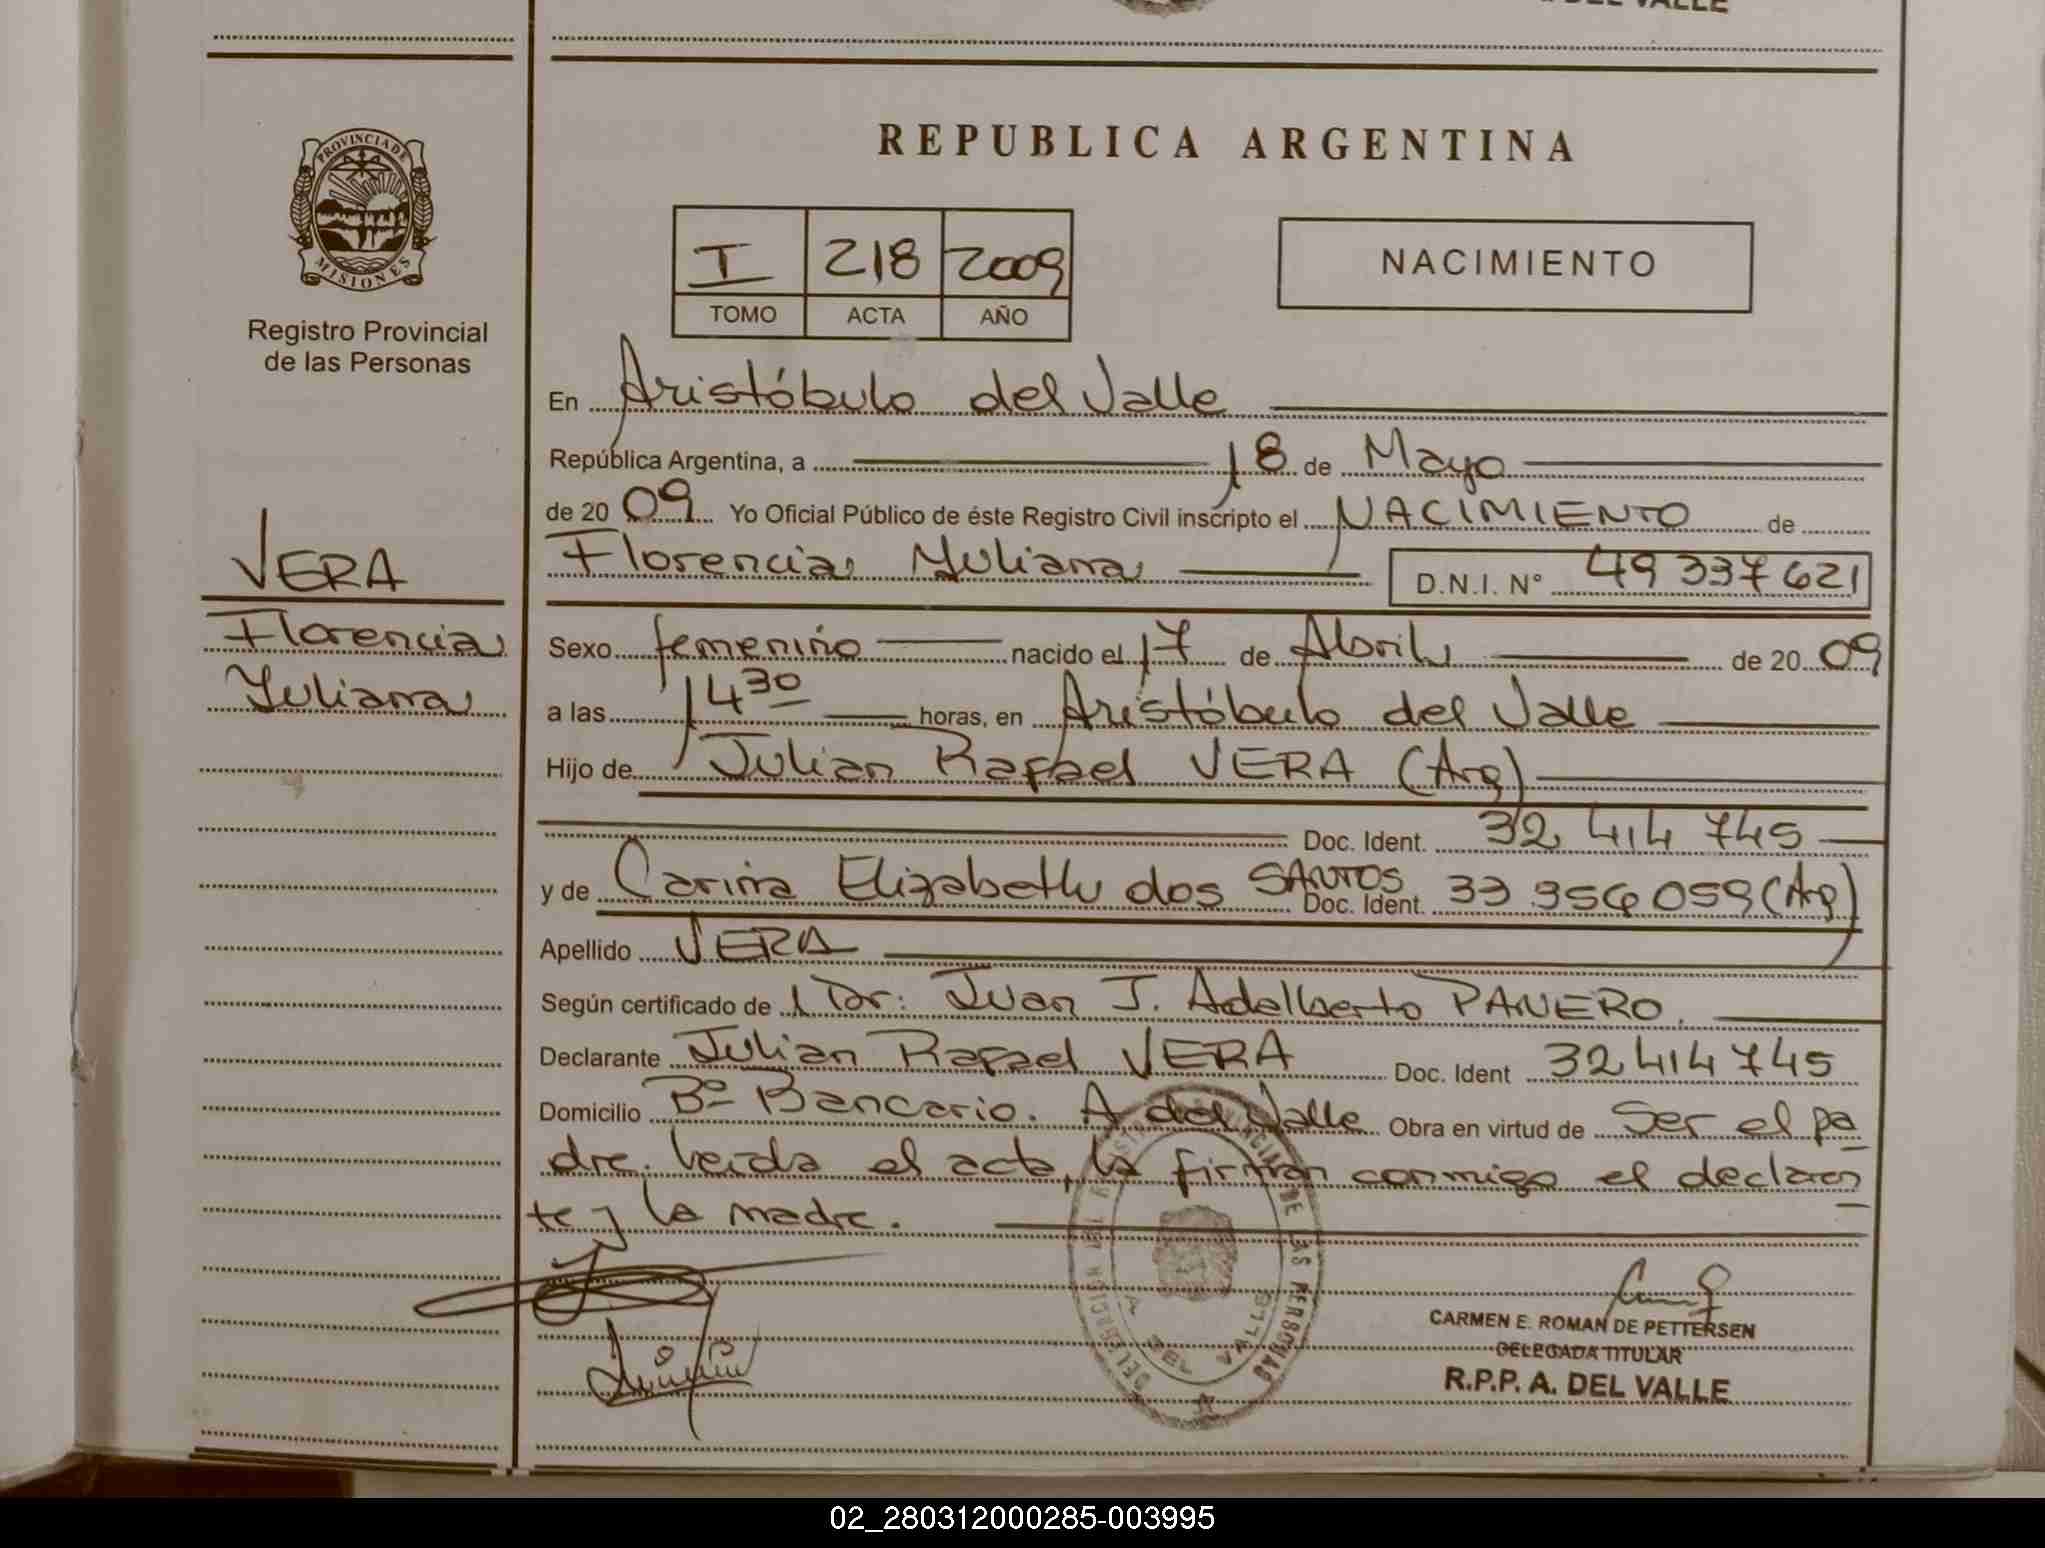 DEL VALLE
PROVINCIA DE
MISIONES
Registro Provincial
de las Personas
VERA
Florencia
Yuliana
REPUBLICA ARGENTINA
I 218 2009
TOMO ACTA AÑO
NACIMIENTO
En Aristóbulo del Valle
República Argentina, a 18 de Mayo
de 2009 Yo Oficial Público de éste Registro Civil inscripto el NACIMIENTO de
Florencia Yuliana D.N.I. N° 49 337 621
Sexo femenino nacido el 17 de Abril de 2009
a las 14 30 horas, en Aristóbulo del Valle
Hijo de Julian Rafael VERA (Arg)
Doc. Ident. 32 414 745
y de Carina Elizabeth dos SANTOS Doc. Ident. 33 356 059 (Arg)
Apellido VERA
Según certificado de Dr: Juan J. Adalberto PANERO.
Declarante Julian Rafael VERA Doc. Ident 32 414 745
Domicilio B° Bancario. A. del Valle Obra en virtud de ser el pa
dre. Leida el acta, la firman conmigo el declaran
te y la madre.
REGISTRO PROVINCIAL DE LAS PERSONAS
DELEGACION
A. DEL VALLE
CARMEN E. ROMAN DE PETTERSEN
DELEGADA TITULAR
R.P.P. A. DEL VALLE
02_280312000285-003995